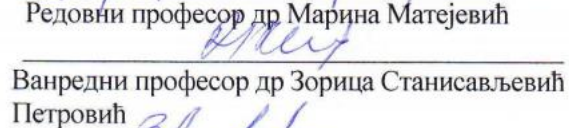 Редовни професор др Марина Матејевић
Ванредни професор др Зорица Станисављевић
Петровић